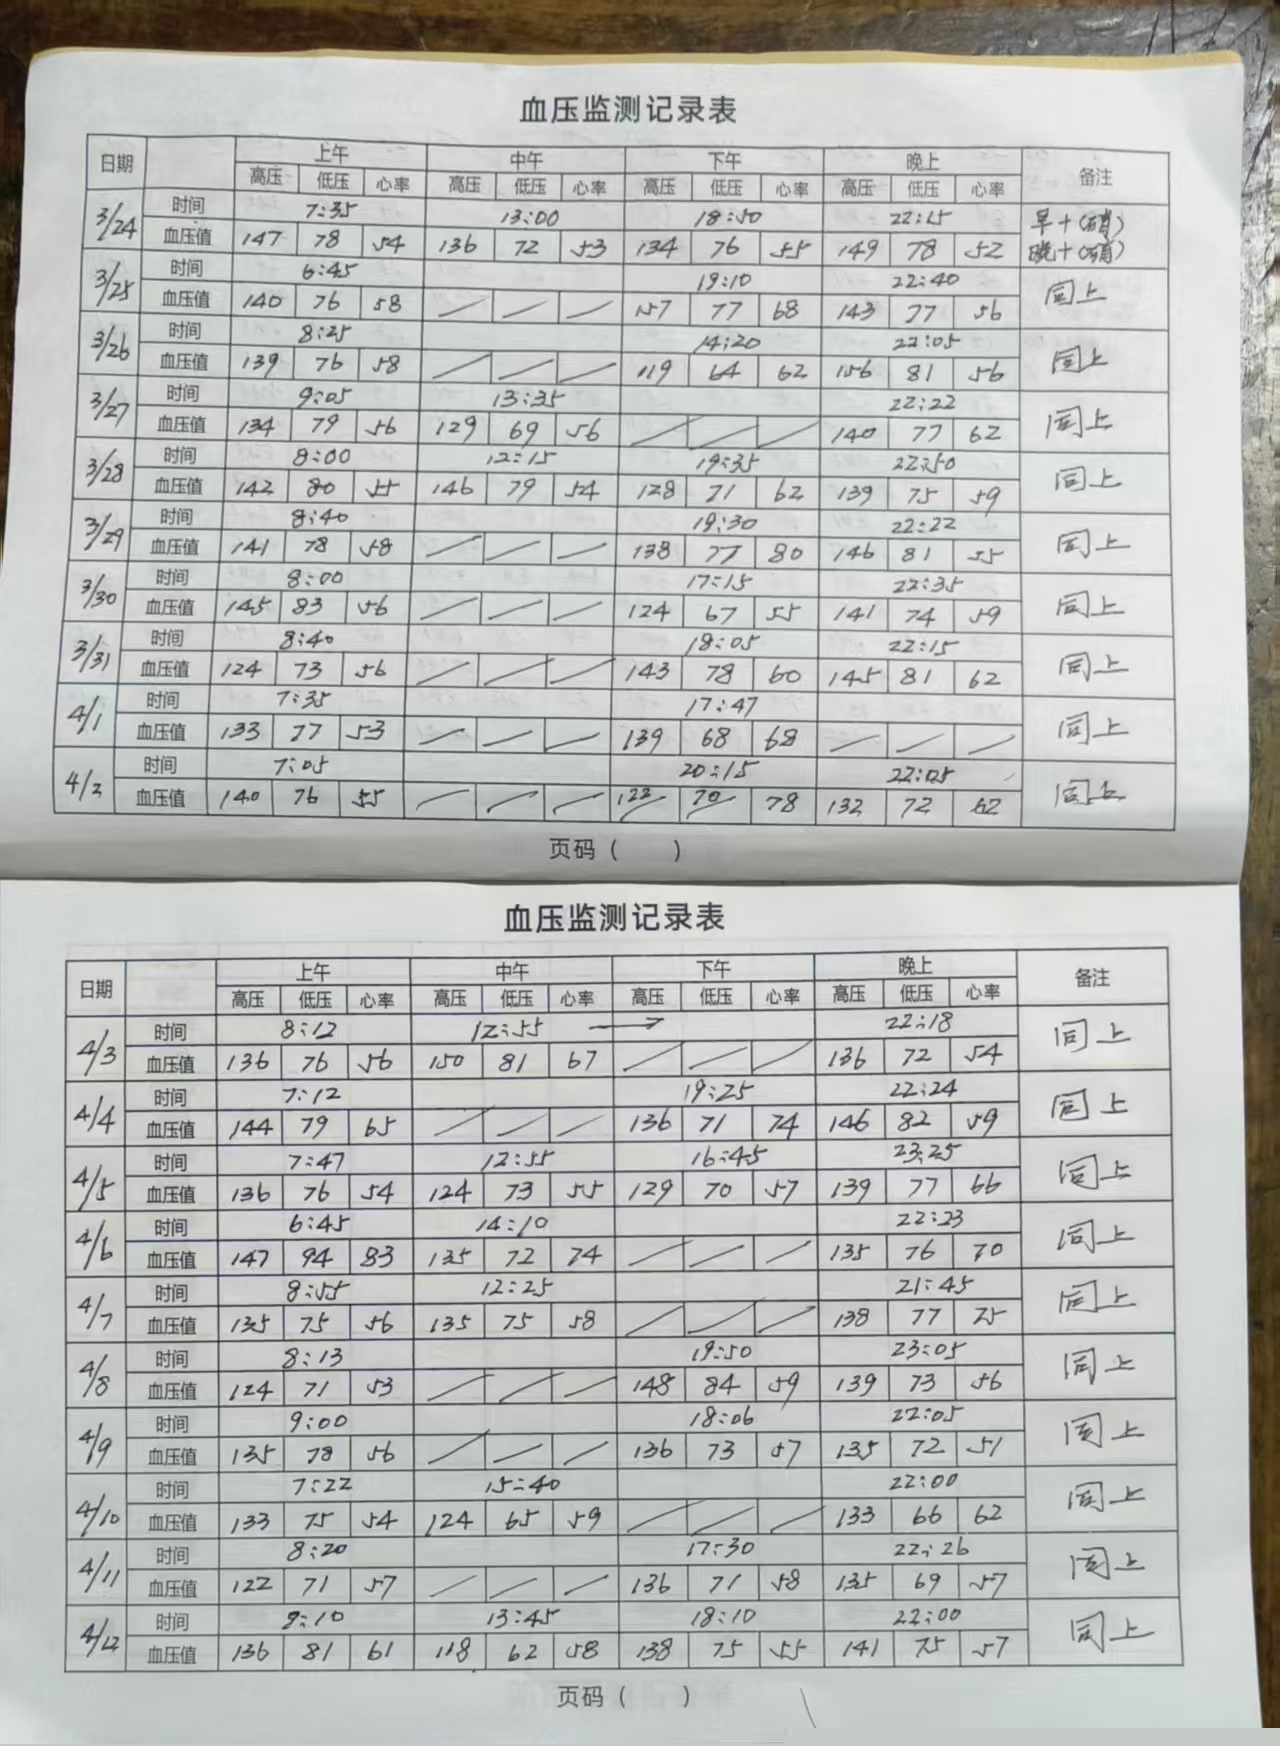 血压监测记录表
日期 上午 中午 下午 晚上 备注
高压 低压 心率 高压 低压 心率 高压 低压 心率 高压 低压 心率
3/24 时间 7:35 13:00 18:50 22:15 早+(硝)
血压值 147 78 54 136 72 53 134 76 55 149 78 52 晚+(硝)
3/25 时间 6:45 19:10 22:40 同上
血压值 140 76 58 157 77 68 143 77 56
3/26 时间 8:25 14:20 22:05 同上
血压值 139 76 58 119 64 62 156 81 56
3/27 时间 9:05 13:35 22:22 同上
血压值 134 79 56 129 69 56 140 77 62
3/28 时间 8:00 12:15 19:35 22:50 同上
血压值 142 80 55 146 79 54 128 71 62 139 75 59
3/29 时间 8:40 19:30 22:22 同上
血压值 141 78 58 138 77 80 146 81 55
3/30 时间 8:00 17:15 22:35 同上
血压值 145 83 56 124 67 55 141 74 59
3/31 时间 8:40 18:05 22:15 同上
血压值 124 73 56 143 78 60 145 81 62
4/1 时间 7:35 17:47 同上
血压值 133 77 53 139 68 68
4/2 时间 7:05 20:15 22:05 同上
血压值 140 76 55 122 70 78 132 72 62
页码( )
血压监测记录表
日期 上午 中午 下午 晚上 备注
高压 低压 心率 高压 低压 心率 高压 低压 心率 高压 低压 心率
4/3 时间 8:12 12:55 → 22:18 同上
血压值 136 76 56 150 81 67 136 72 54
4/4 时间 7:12 19:25 22:24 同上
血压值 144 79 65 136 71 74 146 82 59
4/5 时间 7:47 12:55 16:45 23:25 同上
血压值 136 76 54 124 73 55 129 70 57 139 77 66
4/6 时间 6:45 14:10 22:23 同上
血压值 147 94 83 135 72 74 135 76 70
4/7 时间 8:55 12:25 21:45 同上
血压值 135 75 56 135 75 58 138 77 75
4/8 时间 8:13 19:50 23:05 同上
血压值 124 71 53 148 84 59 139 73 56
4/9 时间 9:00 18:06 22:05 同上
血压值 135 78 56 136 73 57 135 72 51
4/10 时间 7:22 15:40 22:00 同上
血压值 133 75 54 124 65 59 133 66 62
4/11 时间 8:20 17:30 22:26 同上
血压值 122 71 57 136 71 58 135 69 57
4/12 时间 13:45 18:10 22:00 同上
血压值 136 81 61 118 62 58 138 75 55 141 75 57
页码( )